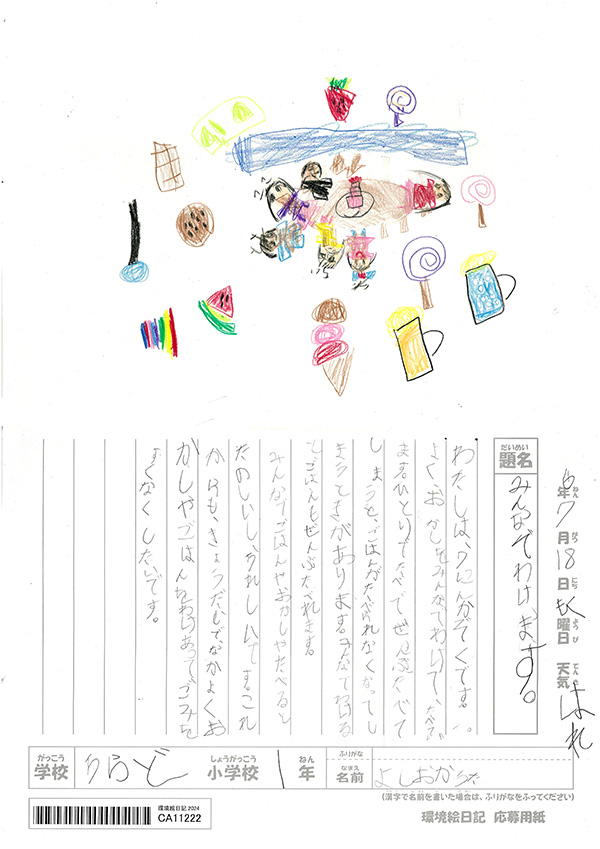 6年7月18日もく曜日 天気はれ
ねん がつ にち ようび てんき
だいめい
題名
みんなでわけます。
わたしは、7にんかぞくです。
よくおかしをみんなでわけて、たべて
ますひとりでたべてぜんぶたべて
しまうと、ごはんがたべれなくなってし
まうときがあります。みんなでわける
とごはんもぜんぶたべれます。
みんなでごはんやおかしやたべると
たのしいし、うれしいです。これ
からも、きょうだいで、なかよくお
かしやごはんをわけあって、ごみを
すくなくしたいです。
がっこう
学校
しょうがっこう
小学校
1
ねん
年
ふりがな
なまえ
名前
(漢字で名前を書いた場合は、ふりがなをふってください)
環境絵日記 2024
CA11222
環境絵日記 応募用紙